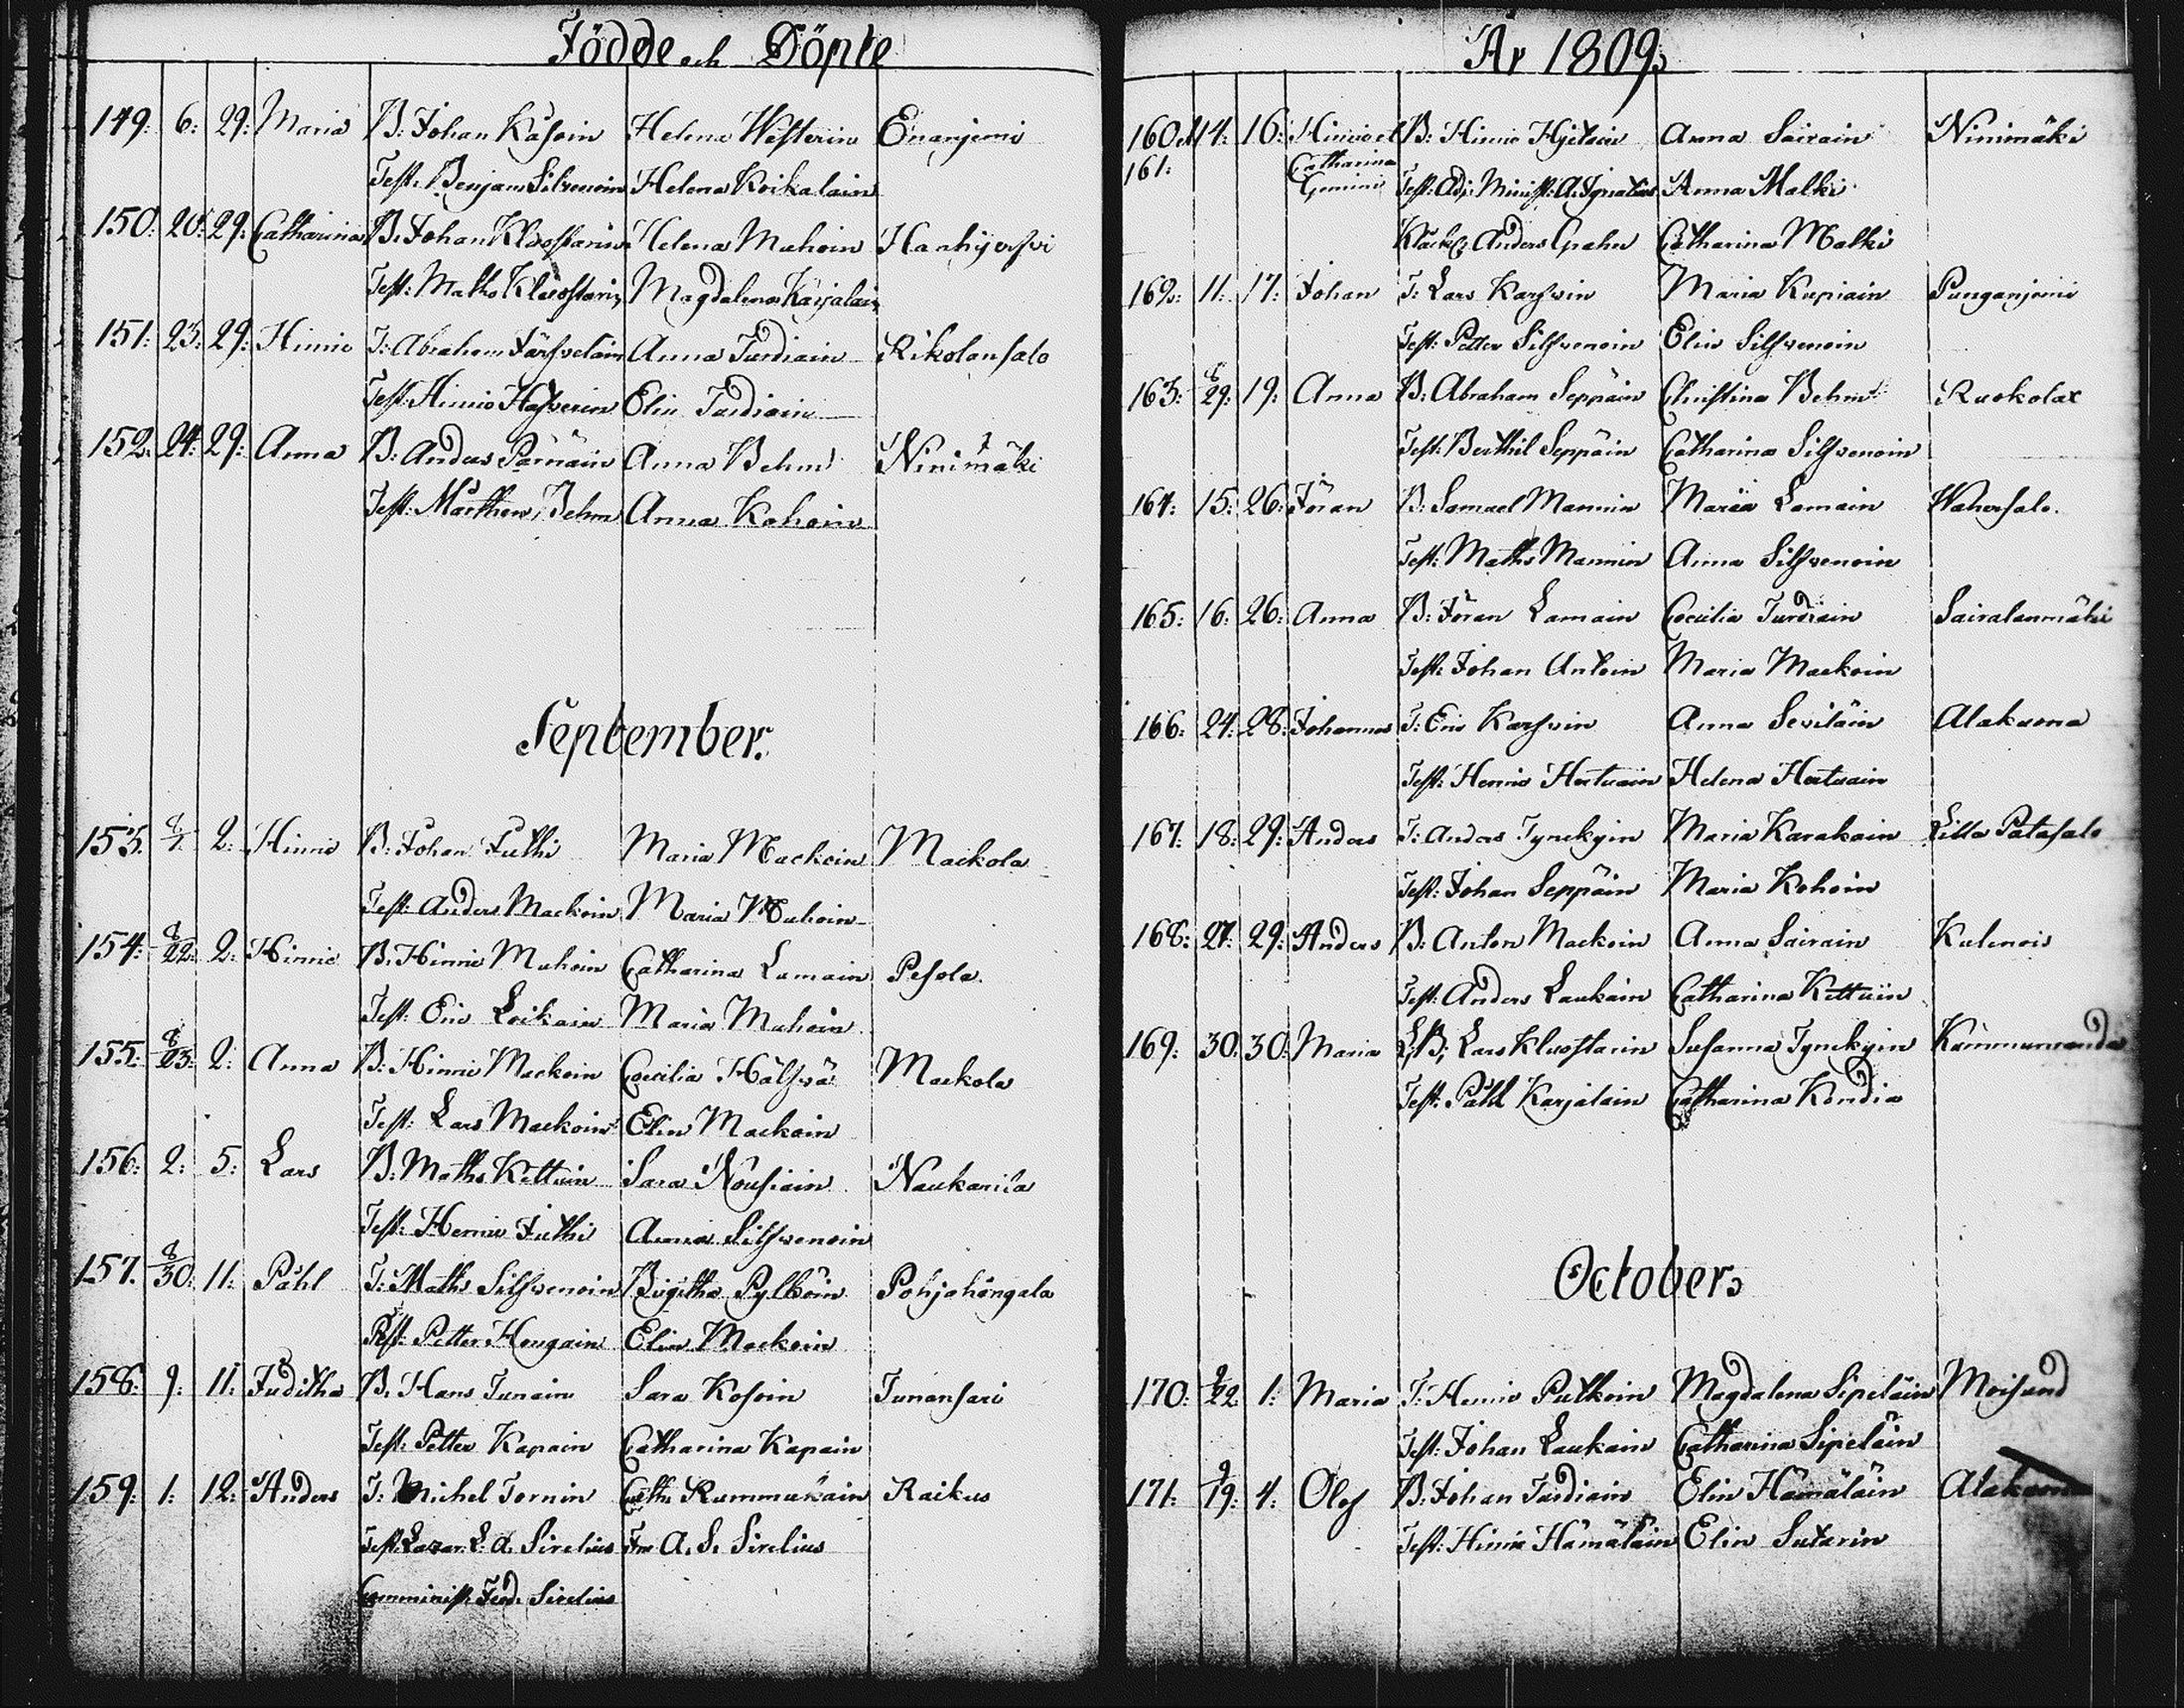 Födde och Döpte
149: 6: 29: Maria B: Johan Kåsoin Helena Westerin Enanjemi
Test: Benjam Silvenoin Helena Koikalain
150: 20: 29: Catharina B. Johan Kloostarin Helena Muhoin Haahijerfvi
Test: Maths Kloostarin Magdalena Karjalain
151: 23: 29: Hinric T: Abraham Järfveläin Anna Turdiain Rikolansalo
Test: Hinric Hafverin Elin Turdiain
152. 24: 29: Anna B: Anders Pärnäin Anna Behm Ninimäki
Test: Marthen Behm Anna Kohoin
September.
153. 8/1. 2: Hinric B: Johan Juthi Maria Mackoin Mackola
Test: Anders Mackoin Maria Muhoin
154: 8/22: 2: Hinric B. Hinric Muhoin Catharina Lamain Pesola.
Test: Eric Loikain Maria Muhoin
155: 8/23: 2: Anna B: Hinric Mackoin Cæcilia Hälfvä Mackola
Test: Lars Mackoin Elin Mackoin
156: 2: 5: Lars B: Maths Kettuin Sara Nousiain Naukarila
Test: Henric Juthi Anna Silfvenoin
157. 8/30: 11: Påhl T: Maths Silfvenoin Birgitha Pylköin Pohjahöngala
Test: Petter Hougain Elin Mackoin
158: 9: 11: Juditha B. Hans Junain Sara Kosoin Junansari
Test: Petter Kapain Catharina Kapain
159: 1: 12: Anders T: Michel Tornin Cath: Rummukain Raikus
Test: L: A. Sirelius Fru A. S. Sirelius
Comminist: Fred. Sirelius
År 1809.
160 et 14: 16: Hinric et B: Hinric Hjetain Anna Sairain Ninimäki
161: Catharina
Gemini Test: Adj: Minist: A: Ignatius Anna Malki
Klåck: Anders Grahn Catharina Malki
162: 11: 17: Johan T: Lars Karfvin Maria Kupiain Punganjemi
Test: Petter Silfvenoin Elin Silfvenoin
163: 8/29: 19: Anna B: Abraham Seppäin Christina Behm Ruokolax
Test: Berthil Seppäin Catharina Silfvenoin
164: 15: 26: Jöran B: Samuel Mannin Maria Lamain Wahersalo.
Test: Maths Mannin Anna Silfvenoin
165: 16: 26: Anna B: Jöran Lamain Cæcilia Turdiain Sairalanmäki
Test: Johan Antoin Maria Mackoin
166: 24: 28: Johannes T: Eric Karfvin Anna Seviläin Alakuona
Test: Henric Hertuain Helena Hertuain
167: 18: 29: Anders T: Anders Tynckyin Maria Karakain Lilla Patasalo
Test: Johan Seppäin Maria Kohoin
168: 27: 29: Anders B: Anton Mackoin Anna Sairain Kulenois
Test: Anders Laukain Catharina Kettuin
169: 30. 30: Maria L: B: Lars Kluostarin Susanna Tynckyin Kammumranda
Test: Påhl Karjalain Catharina Kondia
October
170: 9/22 1: Maria T: Henric Pulkoin Magdalena Sipeläin Moisund
Test: Johan Laukain Catharina Sipeläin
171: 9/19: 4: Olof B: Johan Turdiain Elin Hämäläin Alakuona
Test: Hinric Hämäläin Elin Sutarin